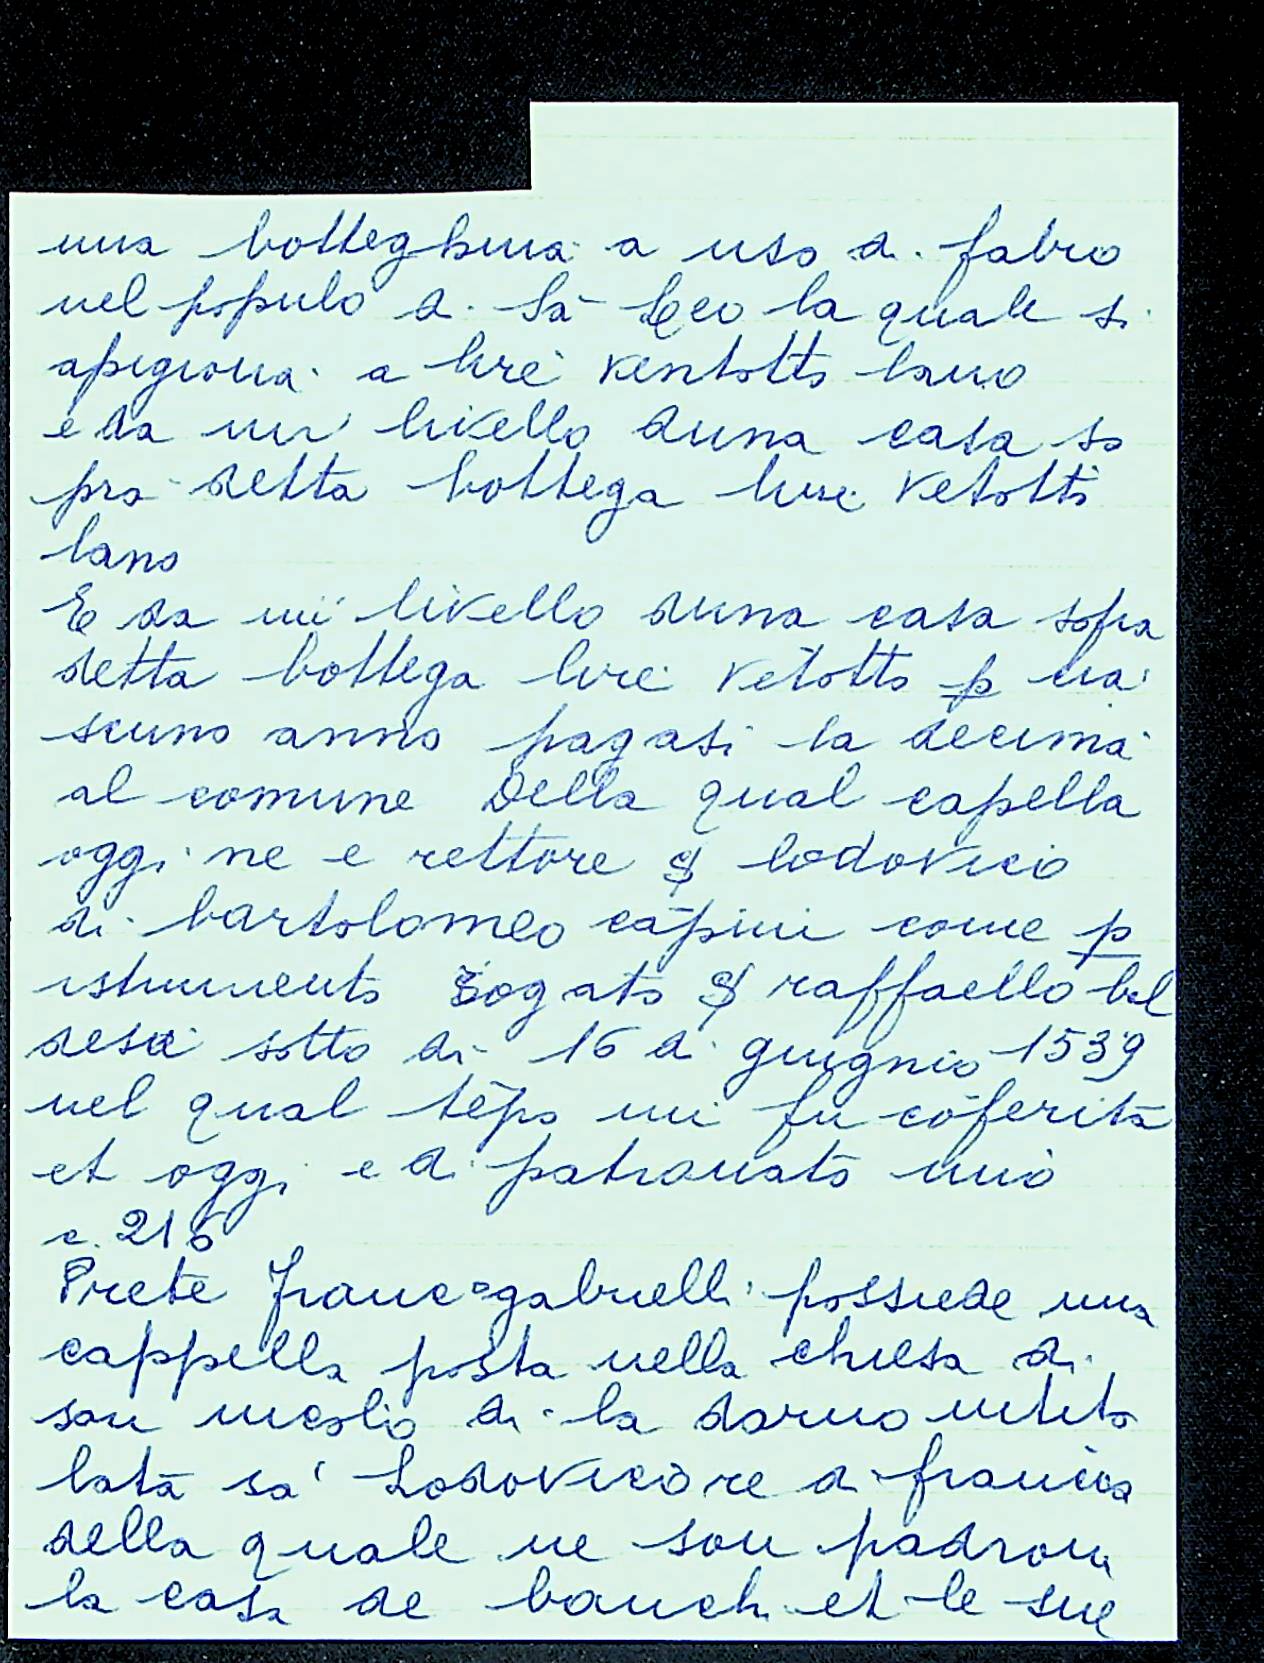 una botteghina a uso di fabro
nel populo di Sā Leo la quale si
apigiona a lire ventotto lano
e da un livello duna casa so
pra detta bottega lire vētotto
lano
E da uī livello duna casa sopra
detta bottega lire vētotto p cia
scuno anno pagasi la decima
al comune Della qual capella
oggi ne e rettore S lodovico
di bartolomeo cāpini come p
istrumento Rogato S raffaello bal
desi sotto di 16 di giugnio 1539
nel qual tēpo mi fu cōferita
et oggi e di patronato mio
c. 216
Prete franc° gabrielli possiede una
cappella posta nella chiesa di
san nicolio di la darno intito
lata sā Lodovico re di francia
della quale ne son padroni
la casa de banchi et le sue